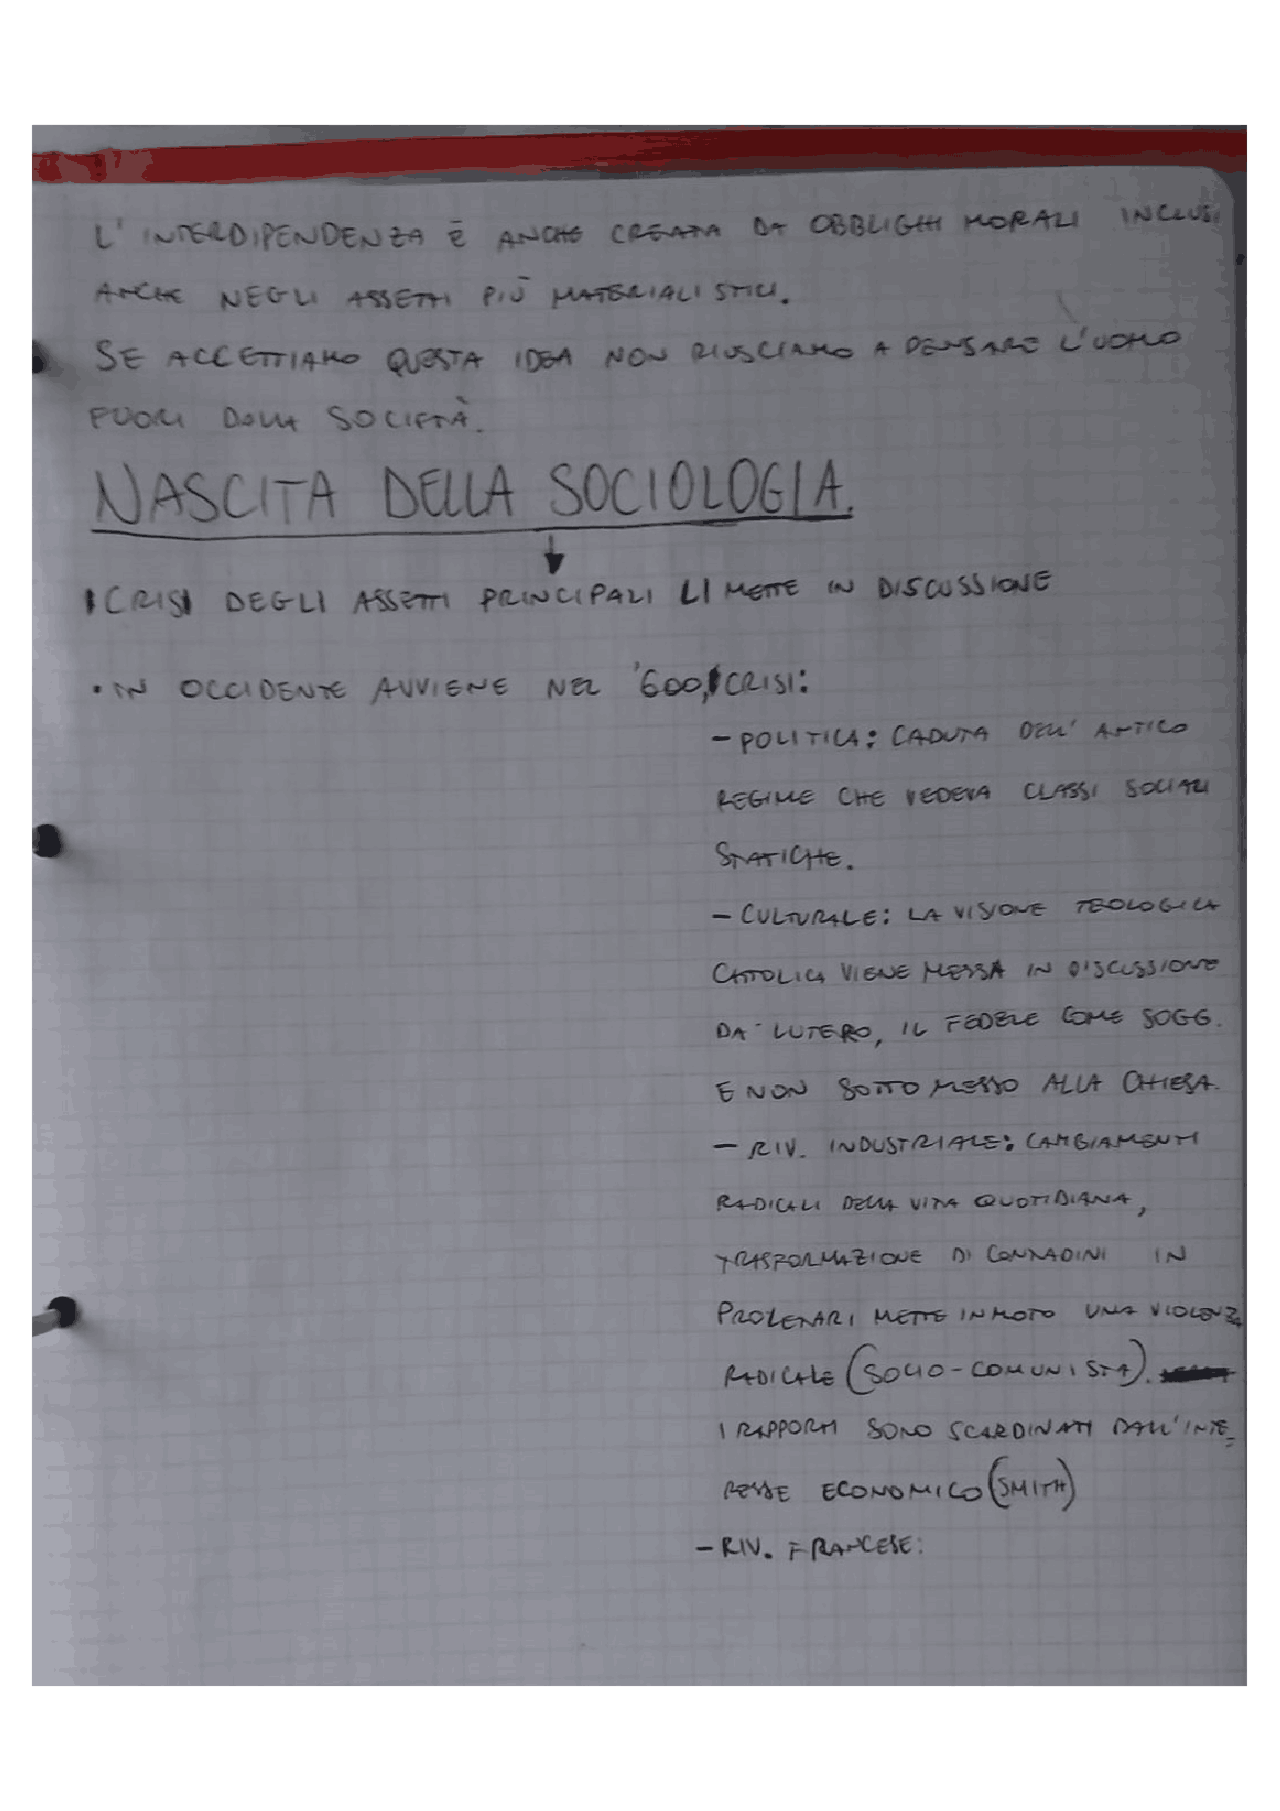 L'INTERDIPENDENZA È ANCHE CREATA DA OBBLIGHI MORALI INCLUSI
ANCHE NEGLI ASSETTI PIÙ MATERIALISTICI.
SE ACCETTIAMO QUESTA IDEA NON RIUSCIAMO A PENSARE L'UOMO
FUORI DALLA SOCIETÀ.
NASCITA DELLA SOCIOLOGIA.
CRISI DEGLI ASSETTI PRINCIPALI LI METTE IN DISCUSSIONE
• IN OCCIDENTE AVVIENE NEL '600, CRISI:
- POLITICA: CADUTA DELL'ANTICO
REGIME CHE VEDEVA CLASSI SOCIALI
STATICHE.
- CULTURALE: LA VISIONE TEOLOGICA
CATTOLICA VIENE MESSA IN DISCUSSIONE
DA LUTERO, IL FEDELE COME SOGG.
E NON SOTTOMESSO ALLA CHIESA.
- RIV. INDUSTRIALE: CAMBIAMENTI
RADICALI DELLA VITA QUOTIDIANA,
TRASFORMAZIONE DI CONTADINI IN
PROLETARI METTE IN MOTO UNA VIOLENZA
RADICALE (SOCIO-COMUNISTA).
I RAPPORTI SONO SCARDINATI DALL'INTE-
RESSE ECONOMICO (SMITH)
- RIV. FRANCESE: